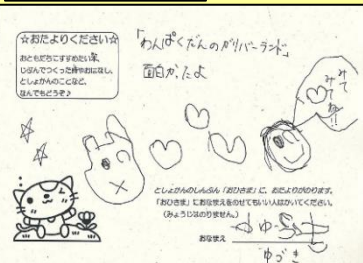 ☆おたよりください☆
おともだちにすすめたい本、
じぶんでつくった詩やおはなし、
としょかんのことなど、
なんでもどうぞ♪
「わんぱくだんのガリバーランド」
面白かったよ
みてみてね!!
としょかんのしんぶん「おひさま」に、おたよりがのります。
「おひさま」におなまえをのせてもいい人はかいてください。
(みょうじはのりません。)
おなまえ
ゆづき